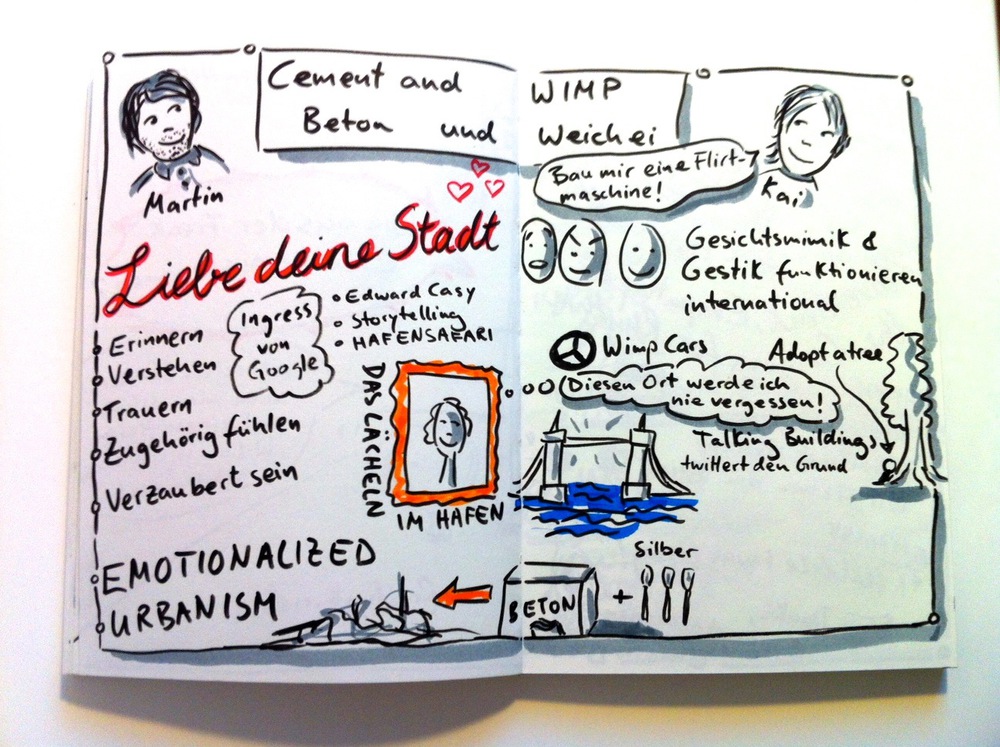 Cement and
Beton und
WIMP
Weichei
Martin
Bau mir eine Flirt-
maschine!
Kai
Liebe deine Stadt
Erinnern
Verstehen
Trauern
Zugehörig fühlen
Verzaubert sein
Ingress
von
Google
Edward Casy
Storytelling
HAFENSAFARI
DAS LÄCHELN
IM HAFEN
EMOTIONALIZED
URBANISM
Gesichtsmimik &
Gestik funktionieren
international
Wimp Cars
Adopt a tree
Diesen Ort werde ich
nie vergessen!
Talking Buildings
twittert den Grund
BETON
+
Silber